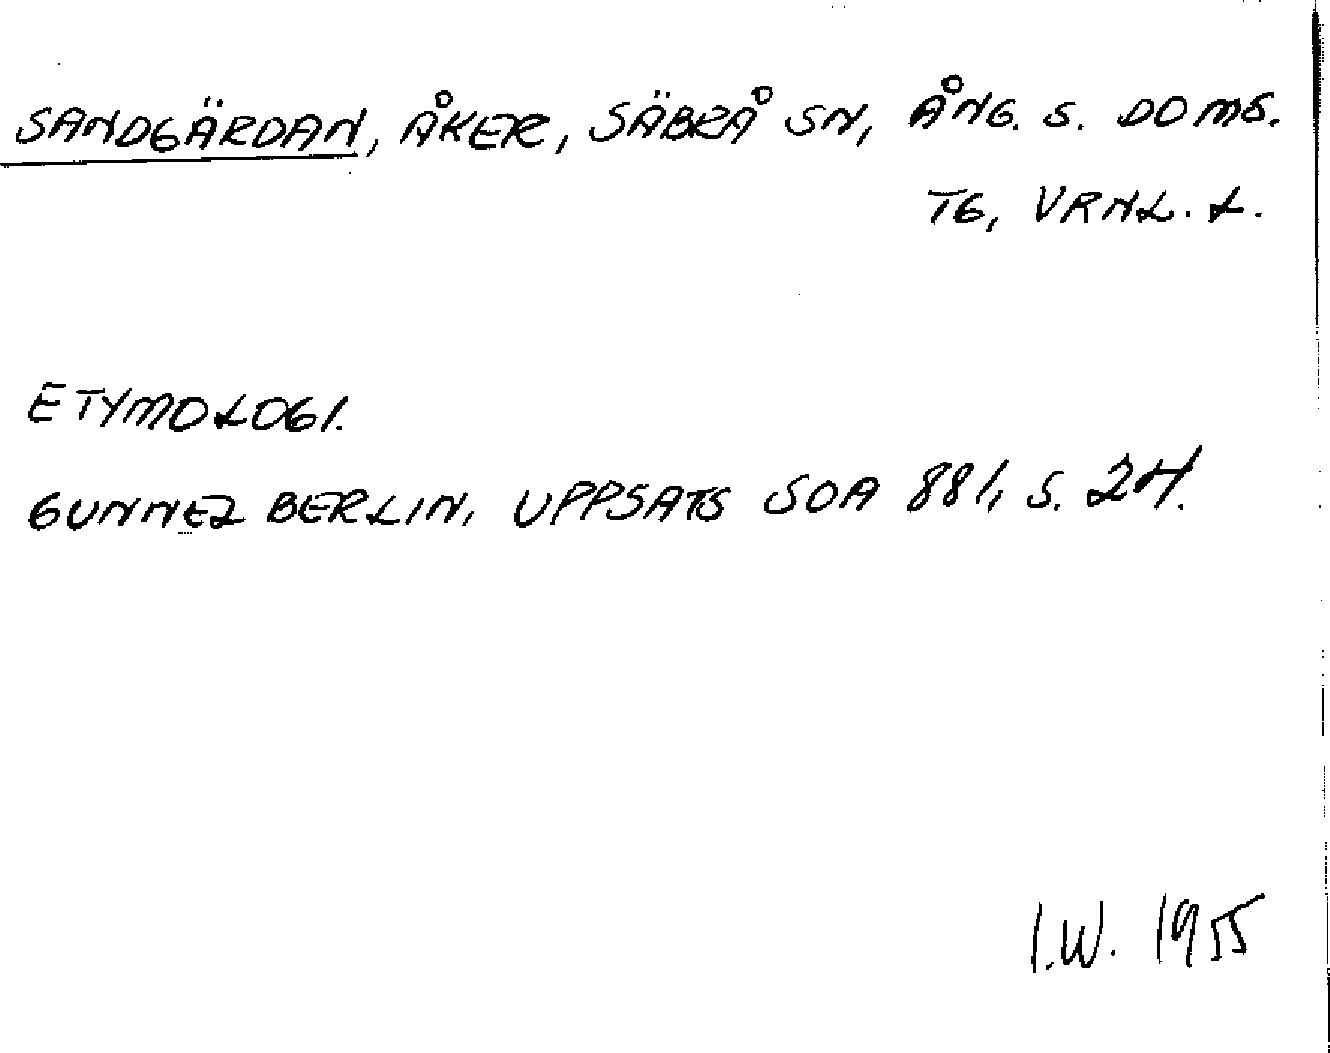 SANDGÄRDAN, ÅKER, SÄBRÅ SN, ÅNG. S. DOMS.
TG, VRNL. L.
ETYMOLOGI.
GUNNEL BERLIN, UPPSATS SOA 881, S. 24.
I.W. 1955